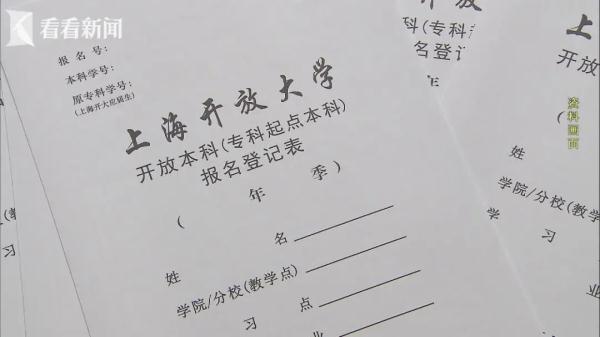 看看新闻
报 名 号:
本科学号:
原专科学号:
(上海开大应届生)
上海开放大学
开放本科(专科起点本科)
报名登记表
( 年 季)
姓 名
学院/分校(教学点)
习 点
业
放大学
科(专科
名登记
年
资料画面
上
开放
(
姓
学院/分校(教
学 习
业
习